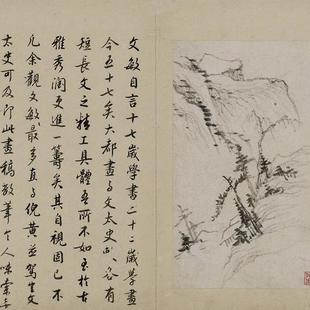 文敏自言十七歲學書二十二歲學畫
今五十七矣大都畫与文太史較各有
短長文之精工具體吾所不如至於古
雅秀潤更進一籌矣其自視固已不
凡余觀文敏最多真与倪黃並駕文
太史可及即此畫稿數筆令人味